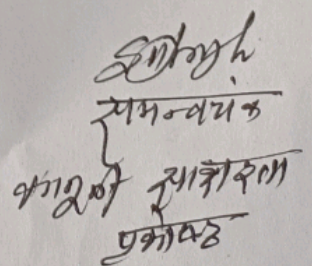 समन्वयक
कानूनी साक्षरता
प्रकोष्ठ